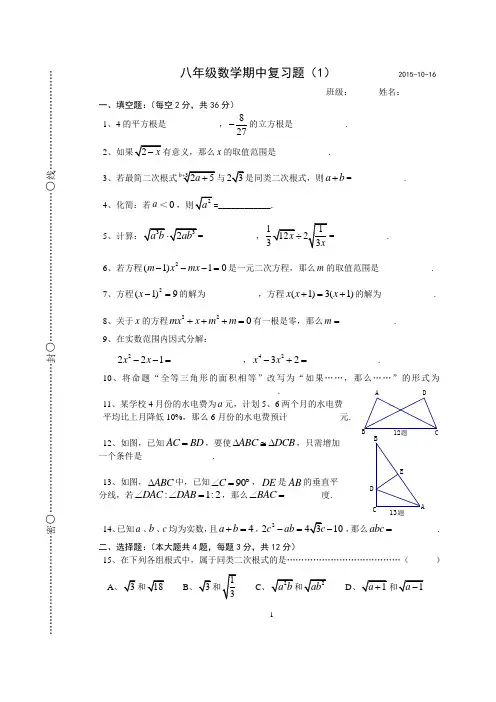 八年级数学期中复习题（1） 2015-10-16
班级： 姓名：
一、填空题：（每空2分，共36分）
1、4的平方根是____________，$-\frac{8}{27}$的立方根是____________.
2、如果$\sqrt{2-x}$有意义，那么$x$的取值范围是____________.
3、若最简二次根式$\sqrt[b+1]{2a+5}$与$2\sqrt{3}$是同类二次根式，则$a+b=$____________.
4、化简：若$a<0$，则$\sqrt{a^2}$=____________.
5、计算：$\sqrt{a^3b}\cdot\sqrt{2ab^3}=$____________，$\frac{1}{3}\sqrt{12x}\div2\sqrt{\frac{1}{3x}}=$____________.
6、若方程$(m-1)x^2-mx-1=0$是一元二次方程，那么$m$的取值范围是____________.
7、方程$(x-1)^2=9$的解为____________，方程$x(x+1)=3(x+1)$的解为____________.
8、关于$x$的方程$mx^2+x+m^2+m=0$有一根是零，那么$m=$____________.
9、在实数范围内因式分解：
$2x^2-2x-1=$____________，$x^4-3x^2+2=$____________.
10、将命题“全等三角形的面积相等”改写为“如果……，那么……”的形式为
____________.
11、某学校4月份的水电费为$a$元，计划5、6两个月的水电费
平均比上月降低10%，那么6月份的水电费预计____________元.
12、如图，已知$AC=BD$，要使$\Delta ABC\cong\Delta DCB$，只需增加
一个条件是____________.
A D
B 12题 C
13、如图，$\Delta ABC$中，已知$\angle C=90°$，$DE$是$AB$的垂直平
分线，若$\angle DAC:\angle DAB=1:2$，那么$\angle BAC=$________度.
B
E
D
C A
13题
14、已知$a$、$b$、$c$均为实数，且$a+b=4$，$2c^2-ab=4\sqrt{3}c-10$，那么$abc=$____________.
二、选择题：（本大题共4题，每题3分，共12分）
15、在下列各组根式中，属于同类二次根式的是…………………………………（ ）
A、$\sqrt{3}$和$\sqrt{18}$ B、$\sqrt{3}$和$\sqrt{\frac{1}{3}}$ C、$\sqrt{a^2b}$和$\sqrt{ab^2}$ D、$\sqrt{a+1}$和$\sqrt{a-1}$
1
密……○……封……○……线